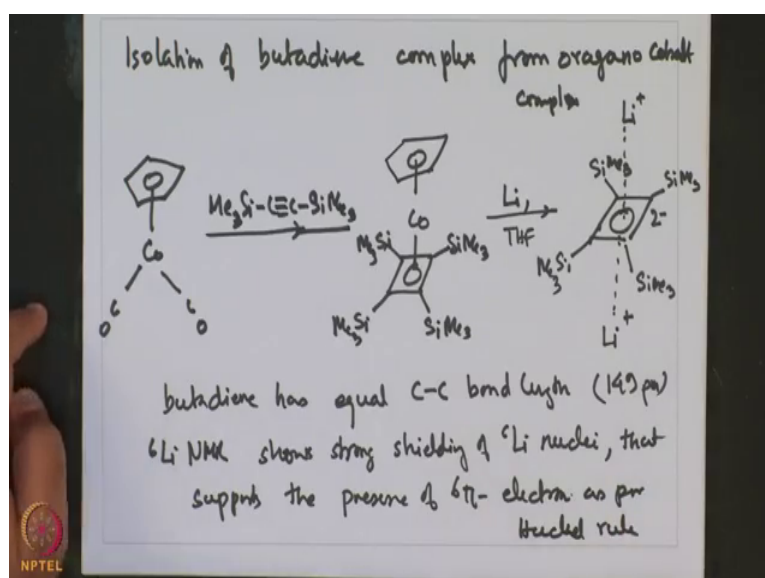 Isolation of butadiene complex from oragano Cobalt
complex
Li+
SiMe3
SiMe3
2-
Me3Si
SiMe3
Li+
Li,
THF
Co
Me3Si
SiMe3
Me3Si
SiMe3
Me3Si-C≡C-SiMe3
Co
C
O
C
O
butadiene has equal C-C bond length (149 pm)
6Li NMR shows strong shielding of 6Li nuclei, that
supports the presene of 6π- electron as per
Huckel rule
NPTEL